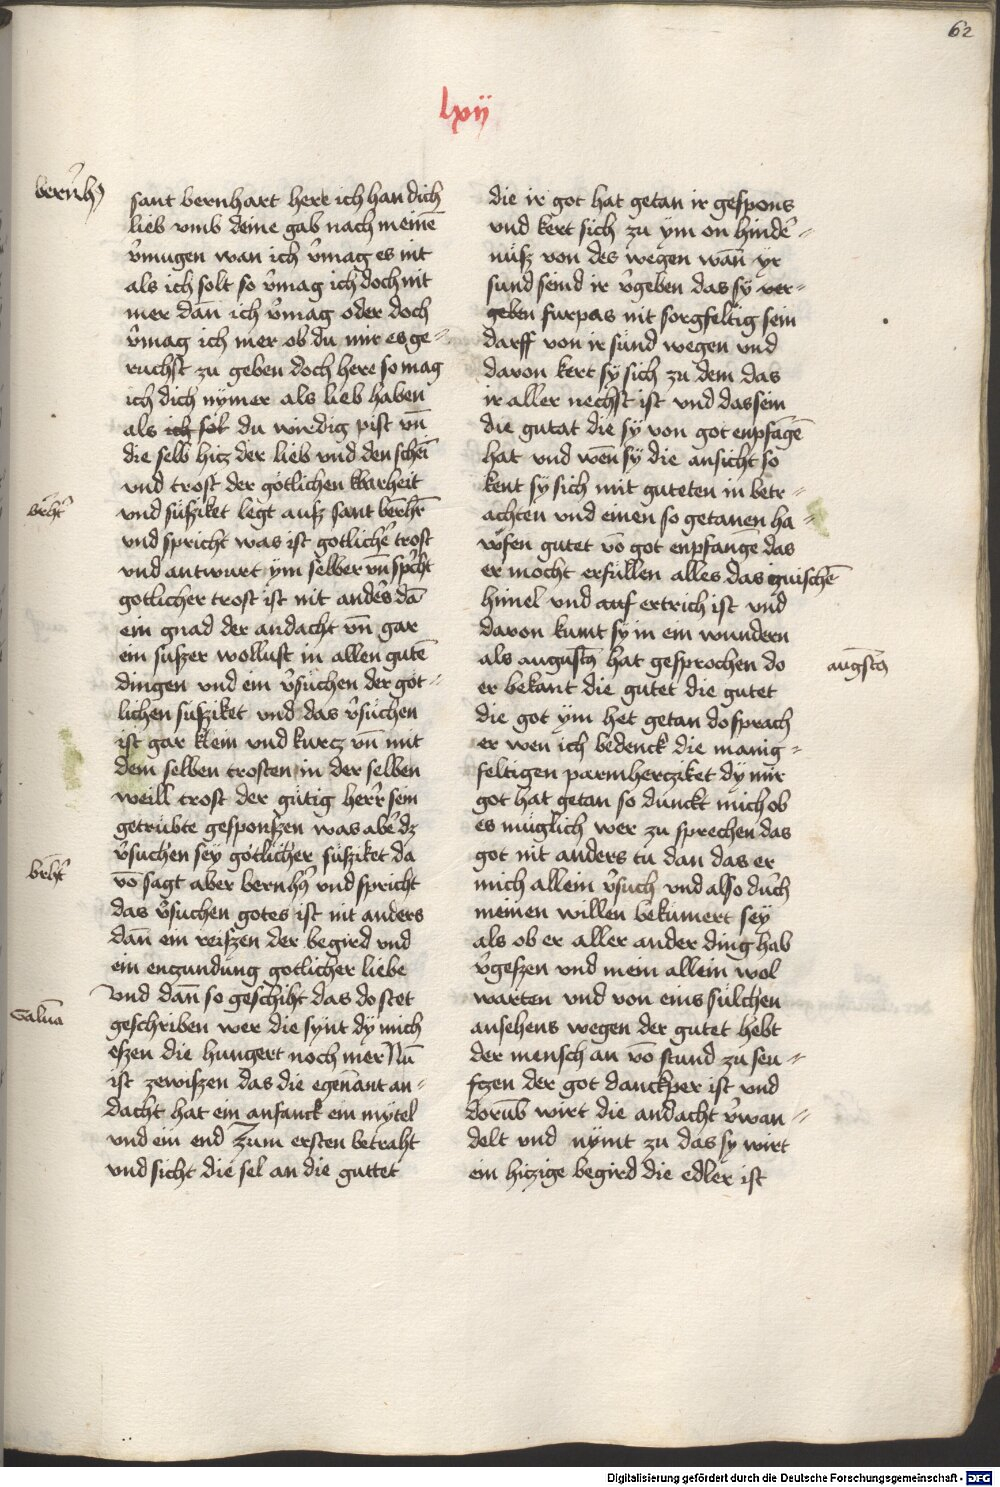 62
lxij
bernh9
sant bernhart here ich han dich
lieb vmb deine gab nach meinē
v̄mugen wan ich v̄mag es nit
als ich solt so v̄mag ich doch nit
mer dan̄ ich v̄mag oder doch
v̄mag ich mer ob du mir es ge=
ruchst zu geben doch here so mag
ich dich nymer als lieb haben
als ich sol du wirdig pist vn̄
die selb hicz der lieb vnd den schei
vnd trost der götlichen klarheit
brh̄t
vnd süsziket legt ausz sant bernhr̄
vnd spricht was ist gotlicher̄ trost
vnd antwurt ym selber vn̄ spr̄cht
gotlicher trost ist nit anders̄ dā
ein gnad der andacht vn̄ gar
ein suszer wollust in allen gutē
dingen vnd ein v̄süchen der göt=
lichen susziket vnd das v̄süchen
ist gar klein vnd kurcz vn̄ mit
dem selben trosten in der selben
weill trost der gütig herr sein
getrübte gesponszen was aber̄ dz
v̄suchen sey götlicher süsziket da
brh̄t
vō sagt aber bernh9 vnd spricht
das v̄suchen gotes ist nit anders
dan̄ ein reiszen der begird vnd
ein enczundung gotlicher liebe
vnd dan̄ so geschiht das do stet
Salua
geschriben wer die synt dy mich
eszen die hungert noch mer Nū
ist zewiszen das die egenant an=
dacht hat ein anfanck ein mytel
vnd ein end Zum ersten betraht
vnd sicht die sel an die guttet
die ir got hat getan ir gespons
vnd kert sich zu ym on hinder̄=
nüsz von des wegen wan̄ yr
sund seind ir v̄geben das sy ver=
geben furpas nit sorgfeltig sein
darff von ir sünd wegen vnd
davon kert sy sich zu dem das
ir aller nechst ist vnd das sein
die gutat die sy von got enpfagē
hat vnd wen̄ sy die ansicht so
kent sy sich mit guteten in betr=
achten vnd einen so getanen ha=
wfen gutet vō got enpfangē das
er mocht erfüllen alles das zwischē
himel vnd auf ertrich ist vnd
davon kumt sy in ein wundern
als augustꝯ hat gesprochen do
augstꝯ
er bekant die gutet die gutet
die got ym het getan do sprach
er wen ich bedenck die manig=
feltigen parmhercziket dy mir
got hat getan so dunckt mich ob
es müglich wer zu sprechen das
got nit anders tu dan das er
mich allein v̄such vnd also durch
meinen willen bekümert sey
als ob er aller ander ding hab
v̄geszen vnd mein allein wol
warten vnd von eins sülchen
ansehens wegen der gutet hebt
der mensch an vō stund zu seu=
fczen der got danckper ist vnd
dorūb wirt die andacht v̄wan=
delt vnd nymt zu das sy wirt
ein hiczige begird die edler ist
Digitalisierung gefördert durch die Deutsche Forschungsgemeinschaft - DFG